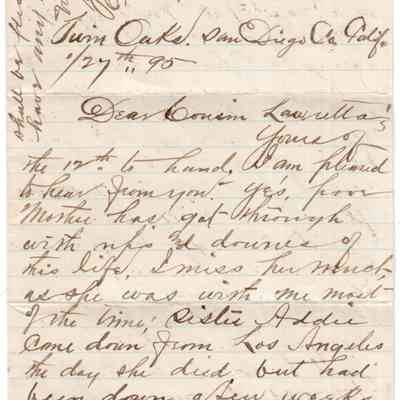 Twin Oaks. San Diego Co. Calif.
1/27th. 95
Dear Cousin Lauretta;
Yours of
the 12th. to hand. I am pleased
to hear from you. Yes, poor
Mother has got through
with ups and downes of
this life. I miss her much
as she was with me most
of the time; Sister Addie
came down from Los Angeles
the day she died but had
been down a few weeks
shall be
have my